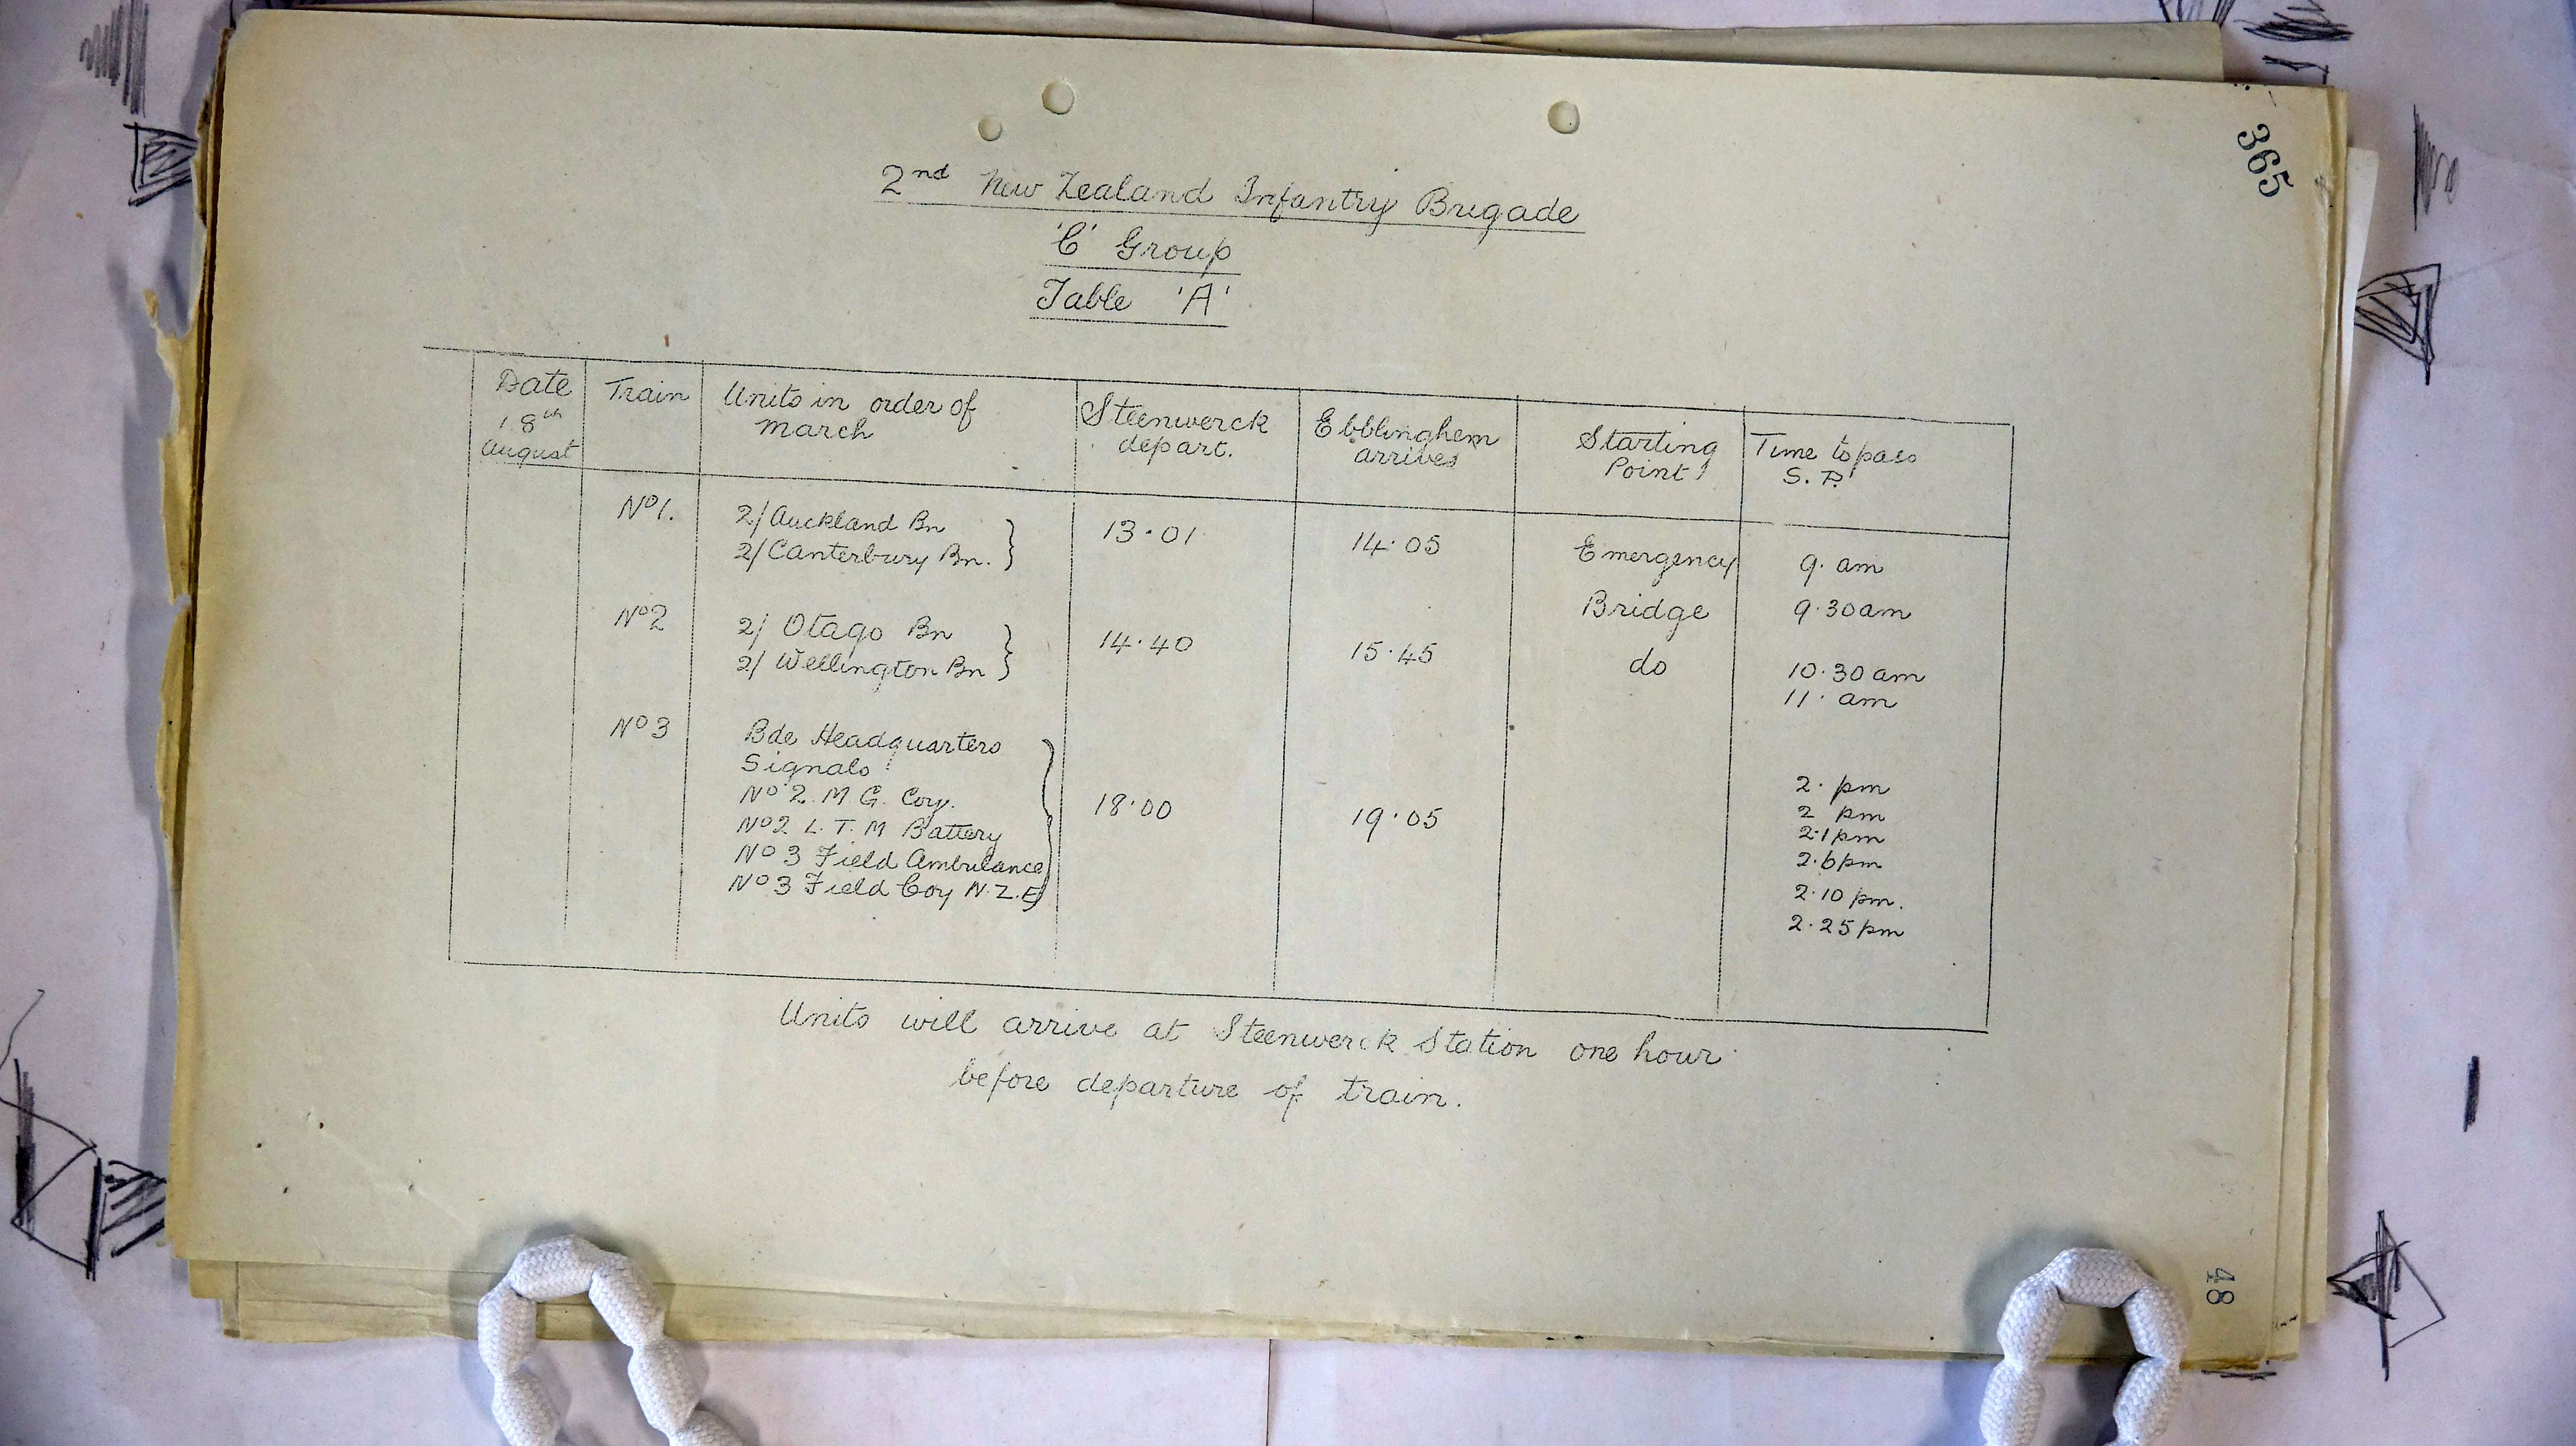 365
2nd New Zealand Infantry Brigade
'C' Group
Table 'A'
Date 18th August
Train
Units in order of march
Steenwerck depart.
Ebblinghem arrives
Starting Point
Time to pass S.P.
No 1. 2/Auckland Bn 13.01 14.05 Emergency 9. am
2/Canterbury Bn. Bridge 9.30am
No 2 2/ Otago Bn 14.40 15.45 do 10.30 am
2/ Wellington Bn 11. am
No 3 Bde Headquarters 18.00 19.05 2. pm
Signals 2 pm
No 2. M G. Coy. 2.1pm
No 2 L. T. M Battery 2.6pm
No 3 Field Ambulance 2.10 pm.
No 3 Field Coy N.Z.E 2.25pm
Units will arrive at Steenwerck Station one hour
before departure of train.
48